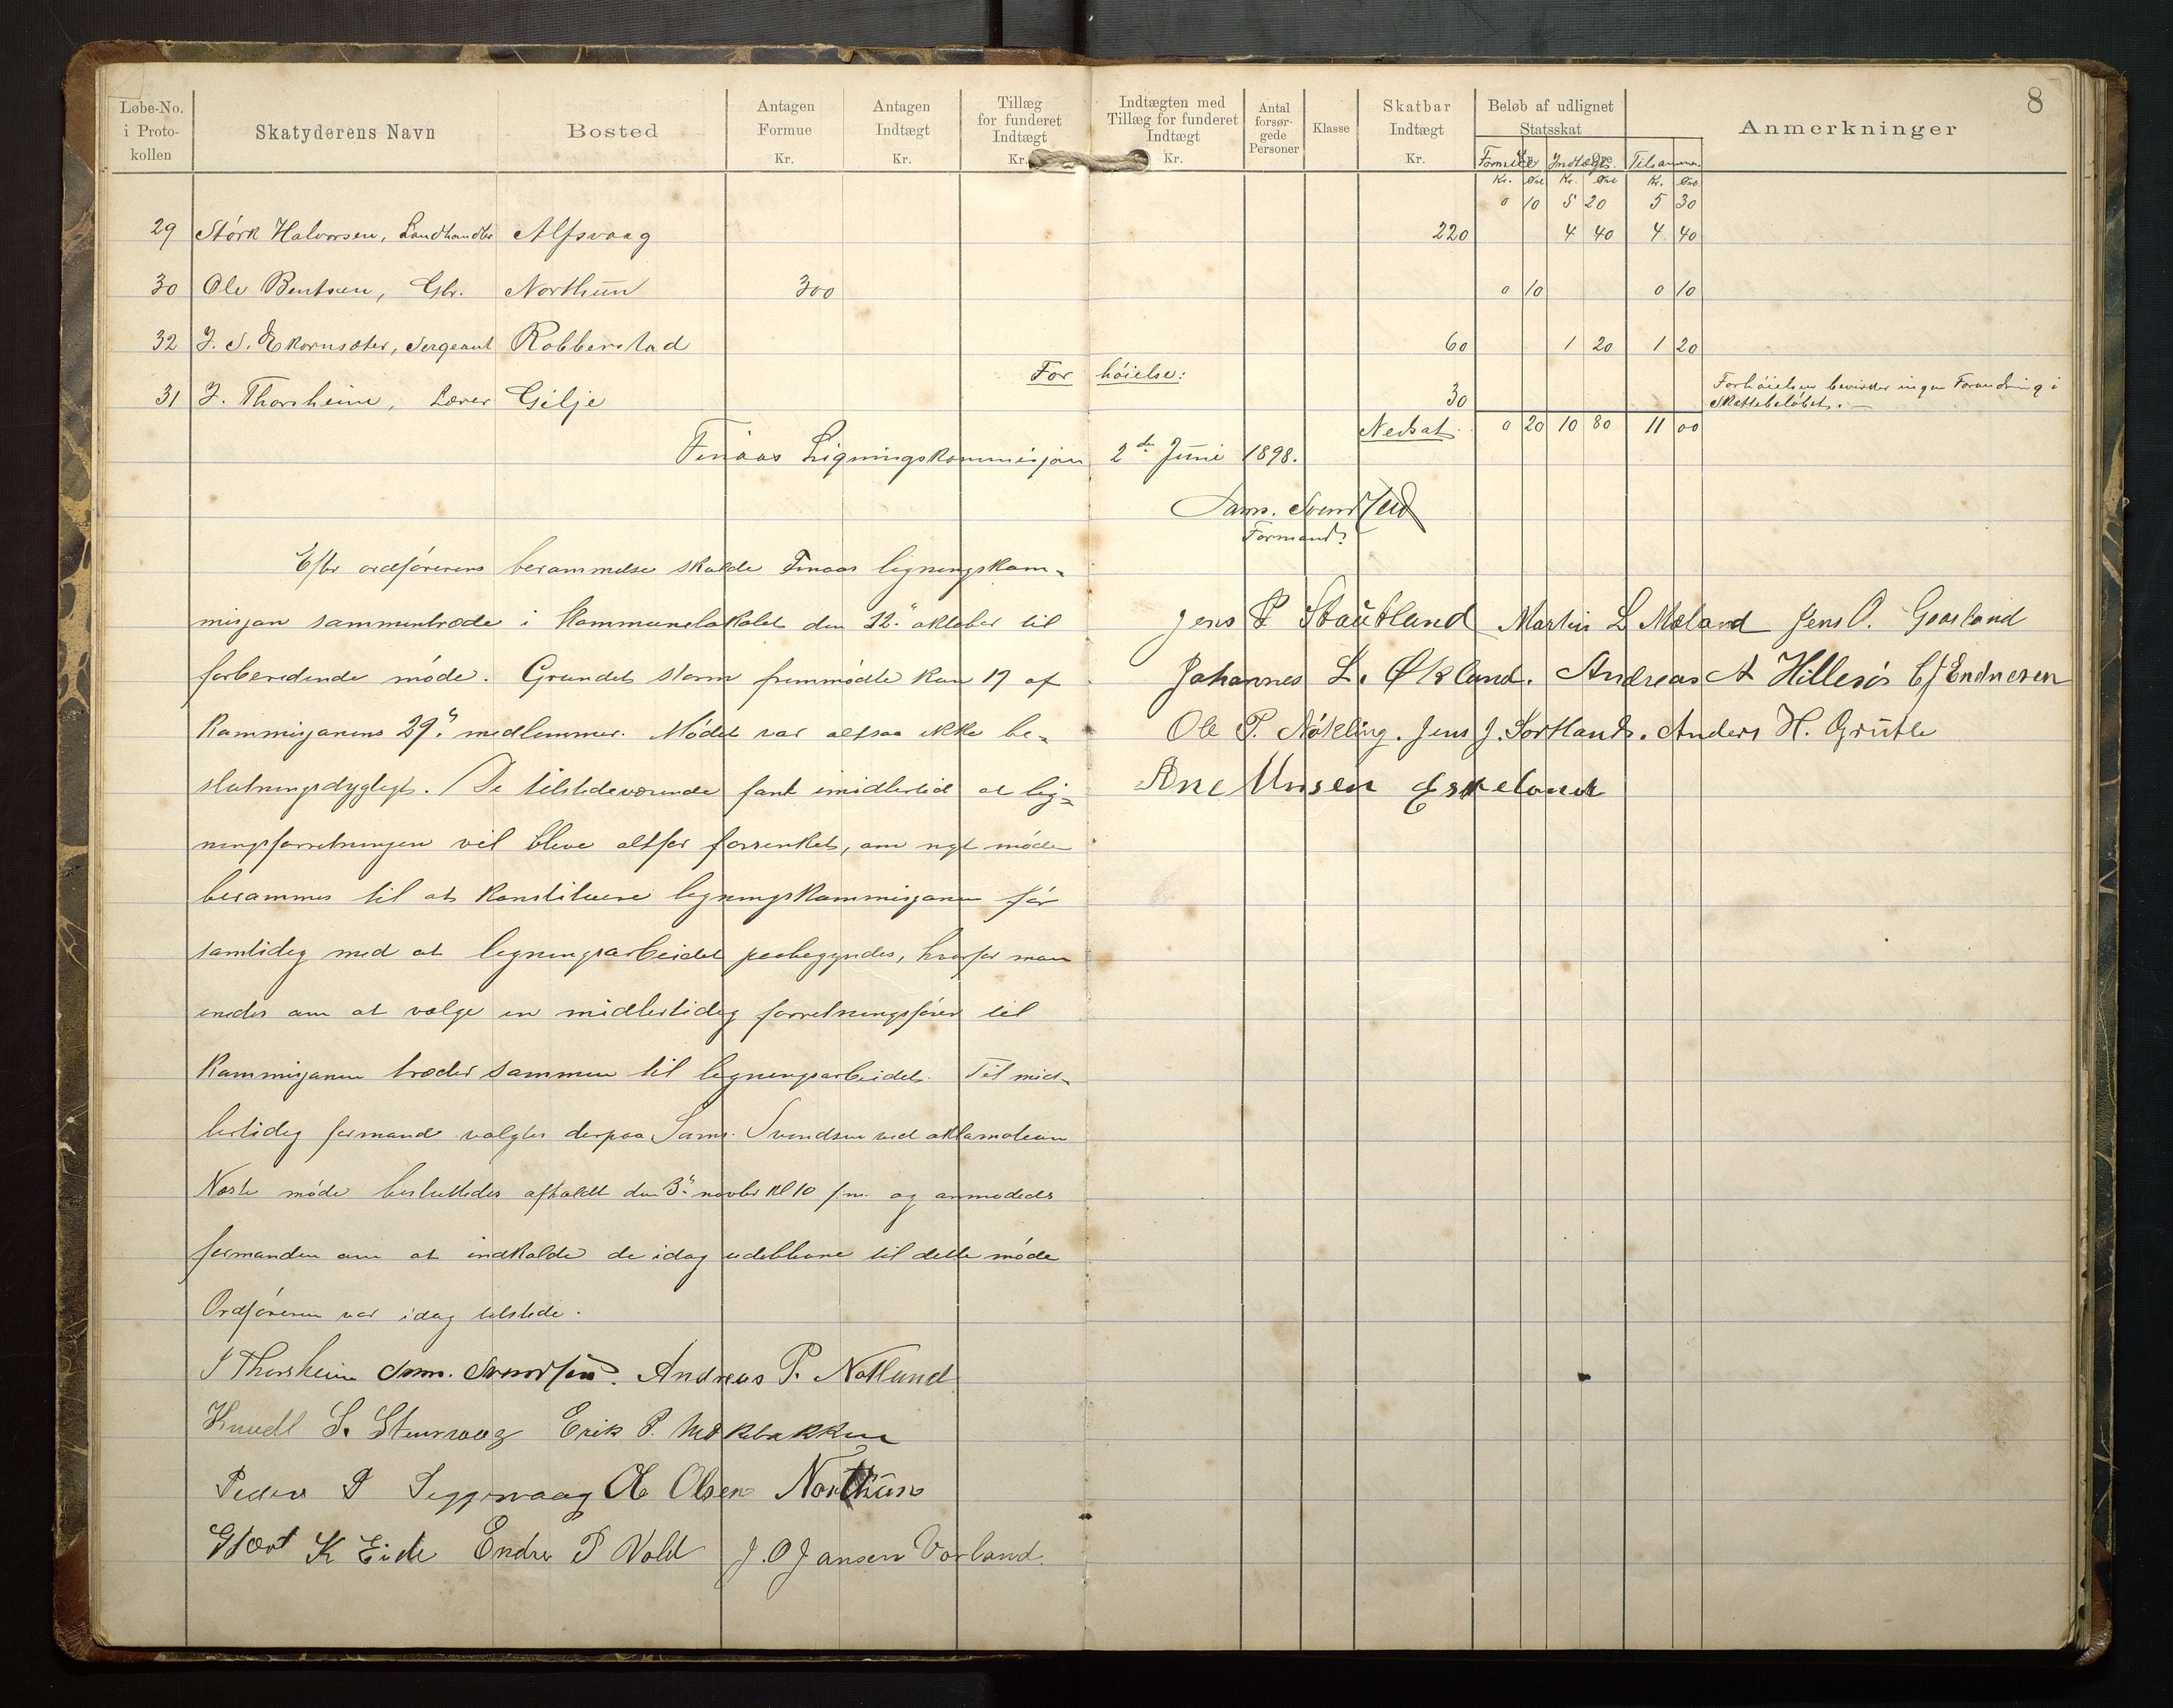 8
Løbe-No. i Protokollen | Skatyderens Navn | Bosted | Antagen Formue Kr. | Antagen Indtægt Kr. | Tillæg for funderet Indtægt Kr. | Indtægten med Tillæg for funderet Indtægt Kr. | Antal forsørgede Personer | Klasse | Skatbar Indtægt Kr. | Beløb af udlignet Statsskat | Anmerkninger
Formue Indtægt Tilsammen
Kr. Øre Kr. Øre Kr. Øre
0 10 5 20 5 30
29 Størk Halvorsen, Landhandler Alfsvaag 220 4 40 4 40
30 Ole Bentsen, Gbr. Northun 300 0 10 0 10
32 J. S. Ekornsæter, Sergeant Robberstad 60 1 20 1 20
Forhøielse:
31 J. Thorsheim, Lærer Gilje 30 Forhøielsen bevirker ingen Forandring i
Skattebeløbet.
Nedsat 0 20 10 80 11 00
Finaas Ligningskommisjon 2den Juni 1898.
Sams. Svendsen
Formand.
Efter ordførerens berammelse skulde Finaas ligningskom-
misjon sammentræde i kommunelokalet den 12. oktober til
forberedende møde. Grundet storm fremmødte kun 17 af
kommisjonens 29 medlemmer. Mødet var altsaa ikke be-
slutningsdygtigt. De tilstedeværende fant imidlertid at lig-
ningsforretningen vil blive altfor forsenket, om nyt møde
berammes til at konstituere ligningskommisjonen før
samtidig med at ligningsarbeidet paabegyndes, hvorfor man
enedes om at vælge en midlertidig forretningsfører til
kommisjonen træder sammen til ligningsarbeidet. Til mid-
lertidig formand valgtes derpaa Sams. Svendsen ved aklamation
Næste møde besluttedes afholdt den 3. novbr kl 10 fm. og anmodedes
formanden om at indkalde de idag udeblevne til dette møde
Ordføreren var idag tilstede.
J Thorsheim Sam. Svendsen. Andreas P. Notland
Knudt S. Stensvaag Erik P. Møklebakken
Peder P Siggervaag Ole Olsen Northun
Gjært K Eide Endre P Vold J. O Jansen Vorland.
Jens P Stautland Martin L Mæland Jens O. Goosland
Johannes L. Økland. Andreas A Hillesøs E J Endresen
Ole P. Nøkling. Jens J. Sortland. Anders H. Grutle
Arne Monsen Eskeland